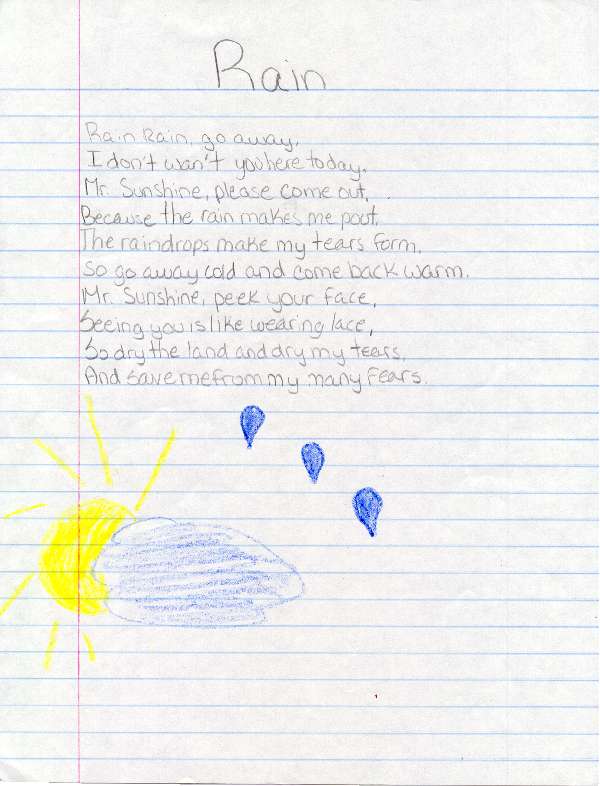 Rain
Rain Rain, go away,
I don't wan't you here today.
Mr. Sunshine, please come out,
Because the rain makes me pout.
The raindrops make my tears form.
So go away cold and come back warm.
Mr. Sunshine, peek your face,
Seeing you is like wearing lace,
So dry the land and dry my tears,
And save me from my many fears.